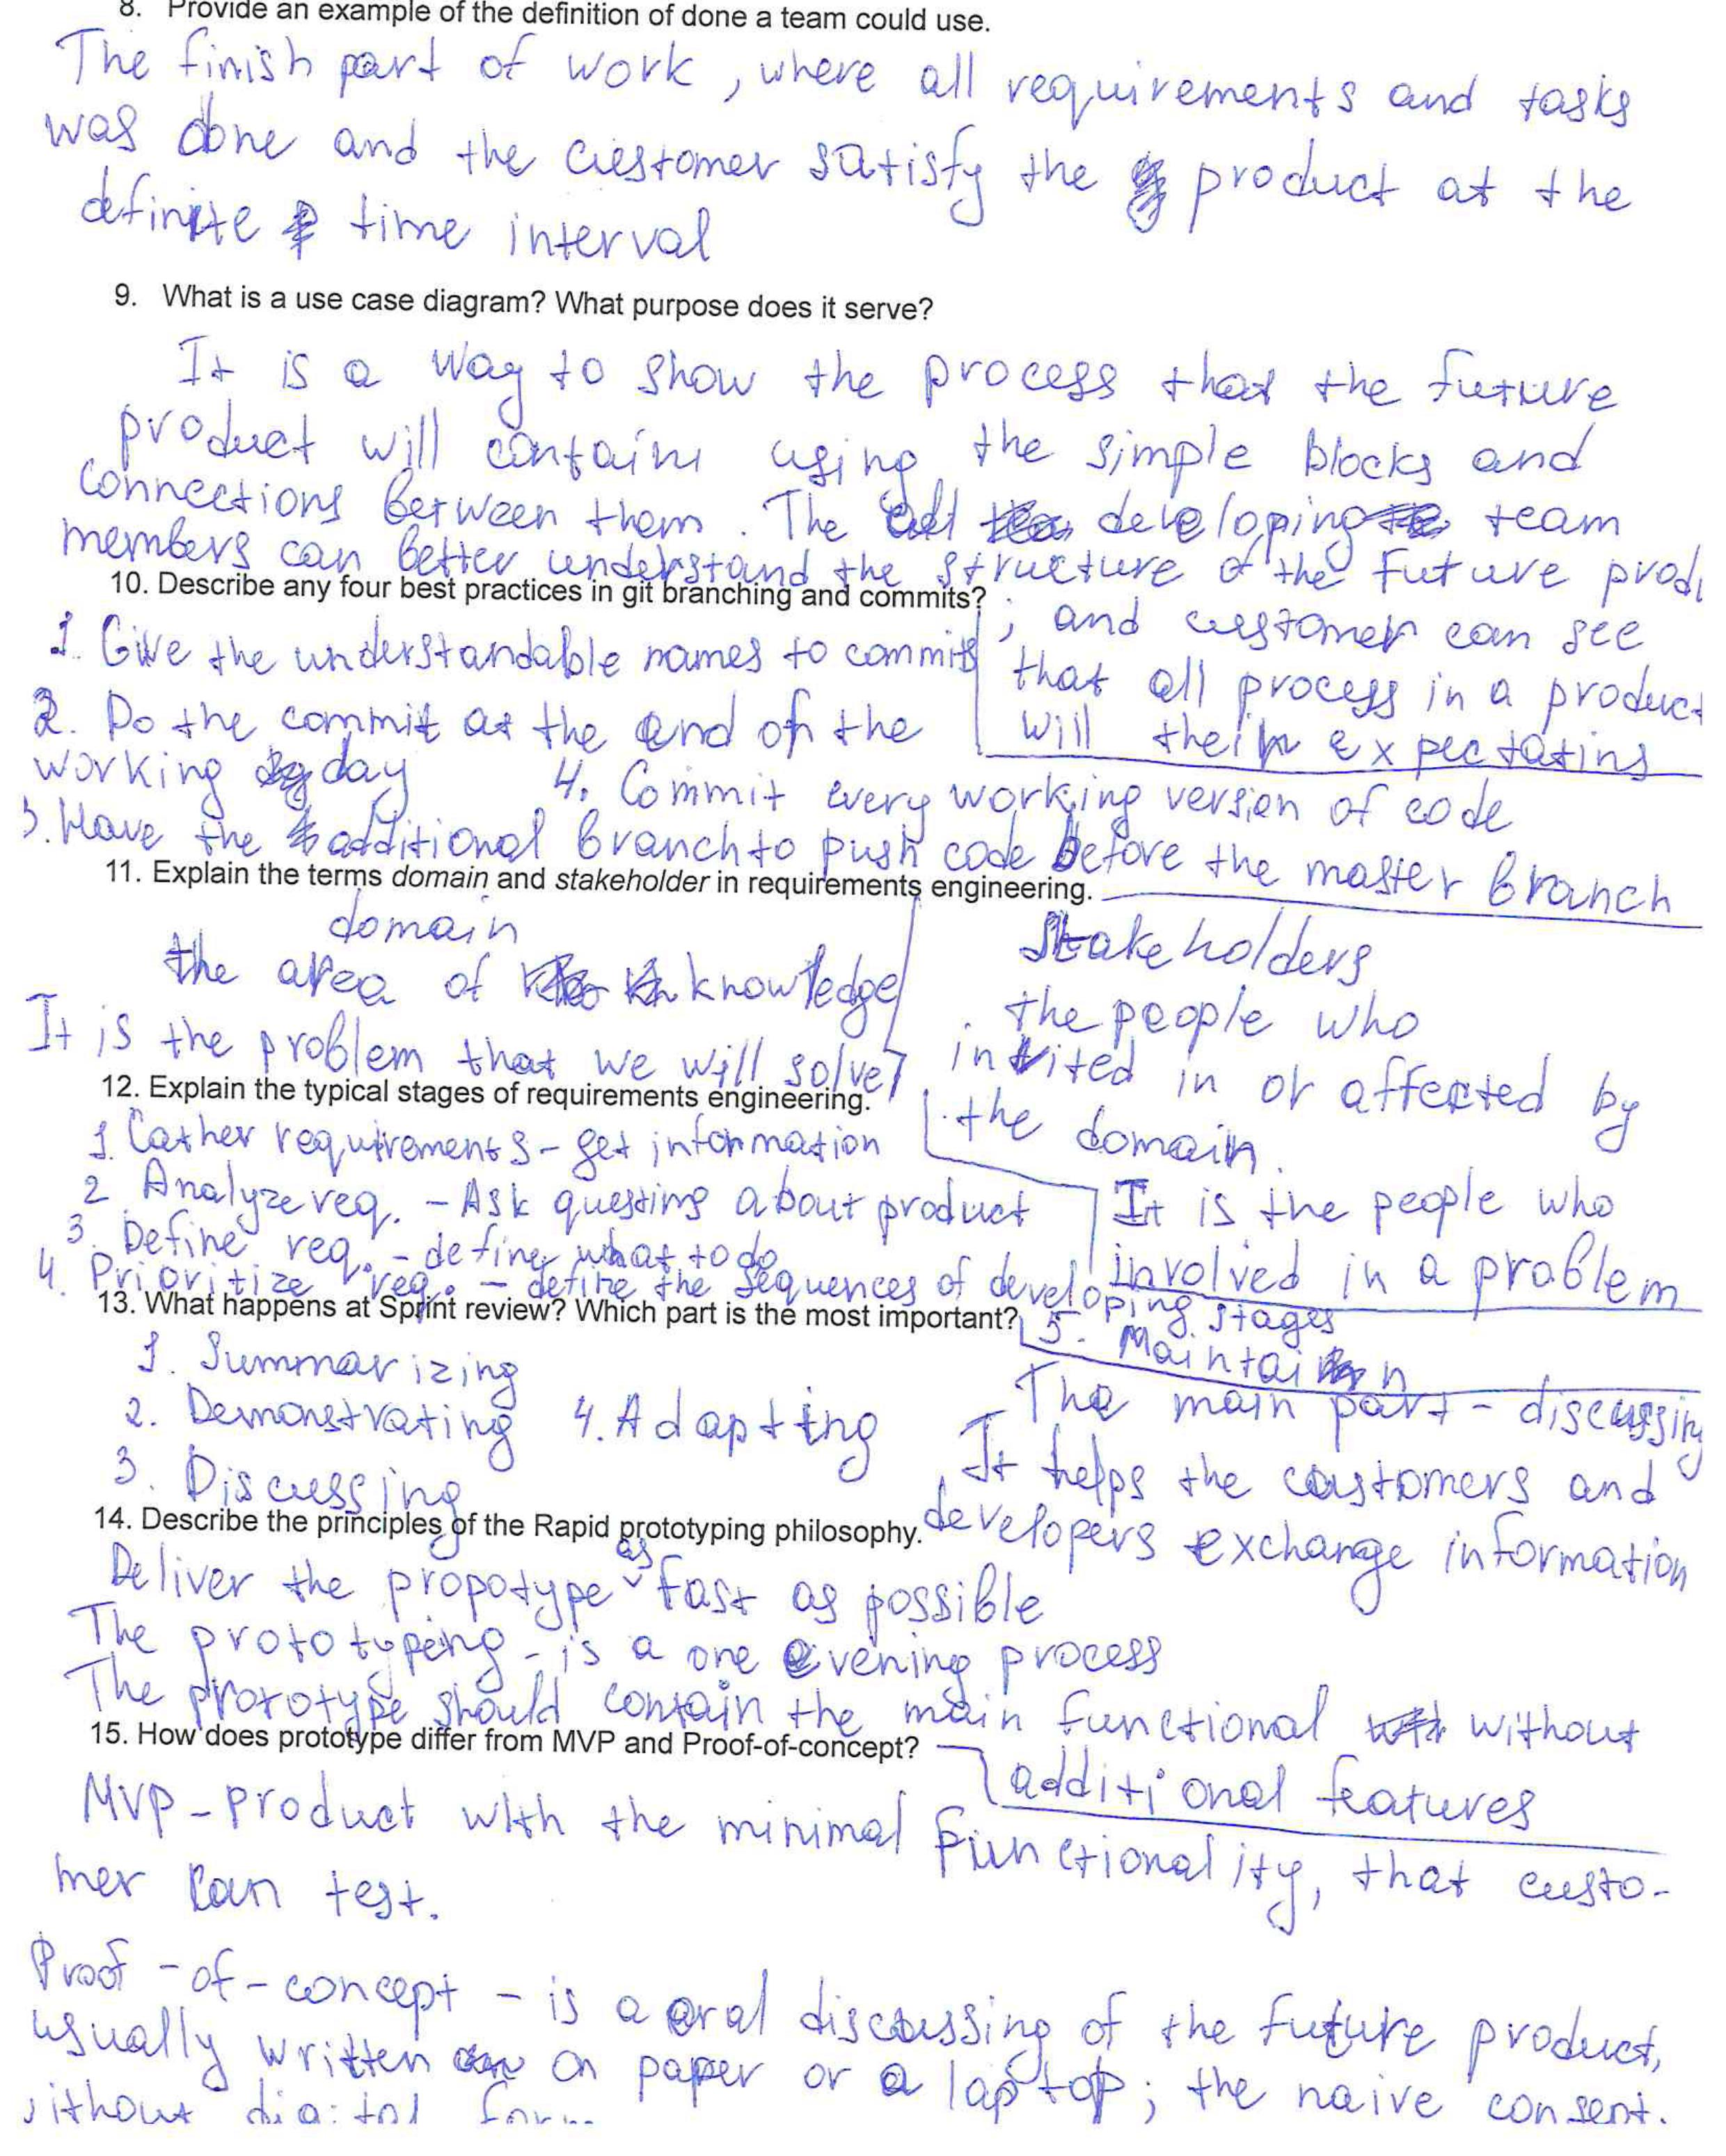 8. Provide an example of the definition of done a team could use.
The finish part of work, where all requirements and tasks
was done and the customer satisfy the product at the
definite time interval
9. What is a use case diagram? What purpose does it serve?
It is a way to show the process that the future
product will contain using the simple blocks and
connections between them. The developing team
members can better understand the structure of the future prod
; and customer can see
that all process in a product
will their expectatins
10. Describe any four best practices in git branching and commits?
1. Give the understandable names to commits
2. Do the commit at the end of the
working day
3. Have the additional branch to push code before the master branch
4. Commit every working version of code
11. Explain the terms domain and stakeholder in requirements engineering.
domain
the area of knowledge
It is the problem that we will solve
Stakeholders
the people who
invited in or affected by
the domain.
It is the people who
involved in a problem
12. Explain the typical stages of requirements engineering.
1. Gather requirements - get information
2 Analyze req. - Ask questing about product
3. Define req. - define what to do
4. Prioritize req. - define the sequences of developing stages
5. Maintain
13. What happens at Sprint review? Which part is the most important?
1. Summarizing
2. Demonstrating
3. Discussing
4. Adapting
The main part - discussing
It helps the customers and
developers exchange information
14. Describe the principles of the Rapid prototyping philosophy.
Deliver the propotype as fast as possible
The prototyping - is a one evening process
The prototype should contain the main functional without
additional features
15. How does prototype differ from MVP and Proof-of-concept?
MVP - product with the minimal functionality, that custo-
mer can test.
Proof-of-concept - is a oral discussing of the future product,
usually written on paper or a laptop; the naive consent.
without digital form